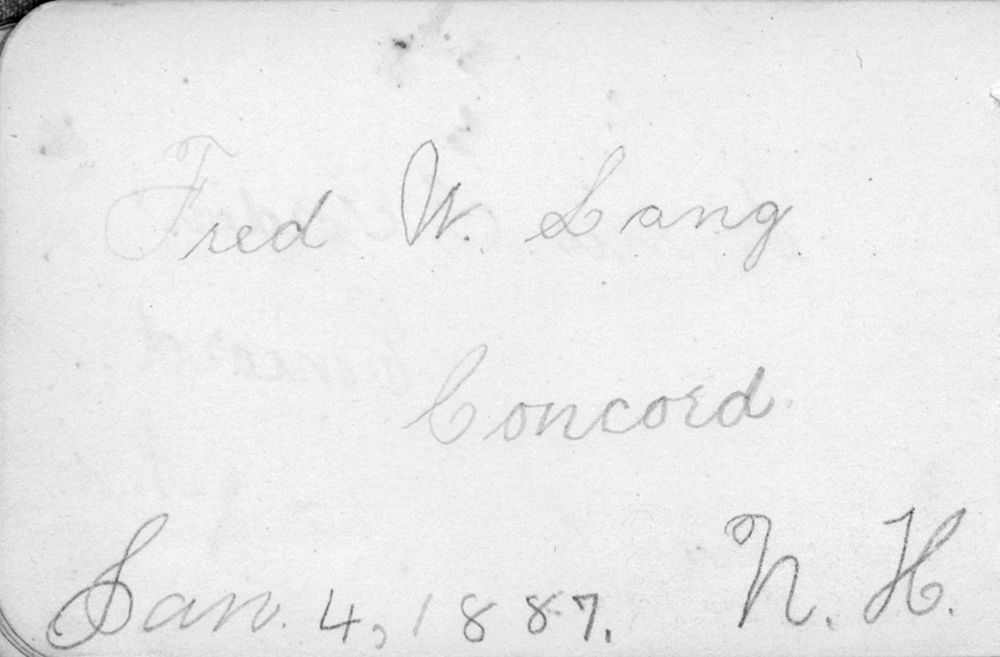 Fred W. Lang
Concord
Jan. 4, 1887. N. H.